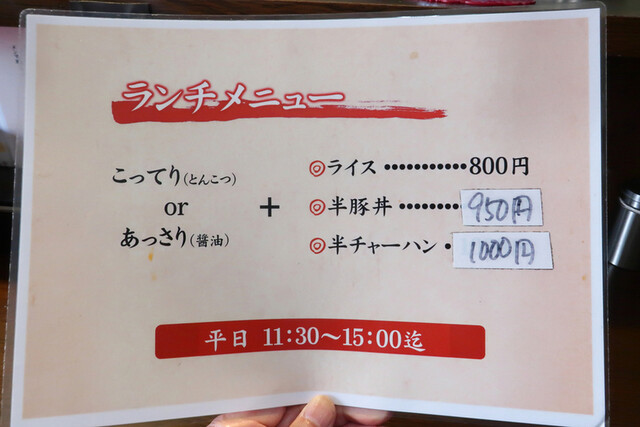 ランチメニュー
こってり(とんこつ)
or
あっさり(醤油)
+
◎ライス•••••••••••800円
◎半豚丼••••••••950円
◎半チャーハン•1000円
平日 11:30〜15:00迄